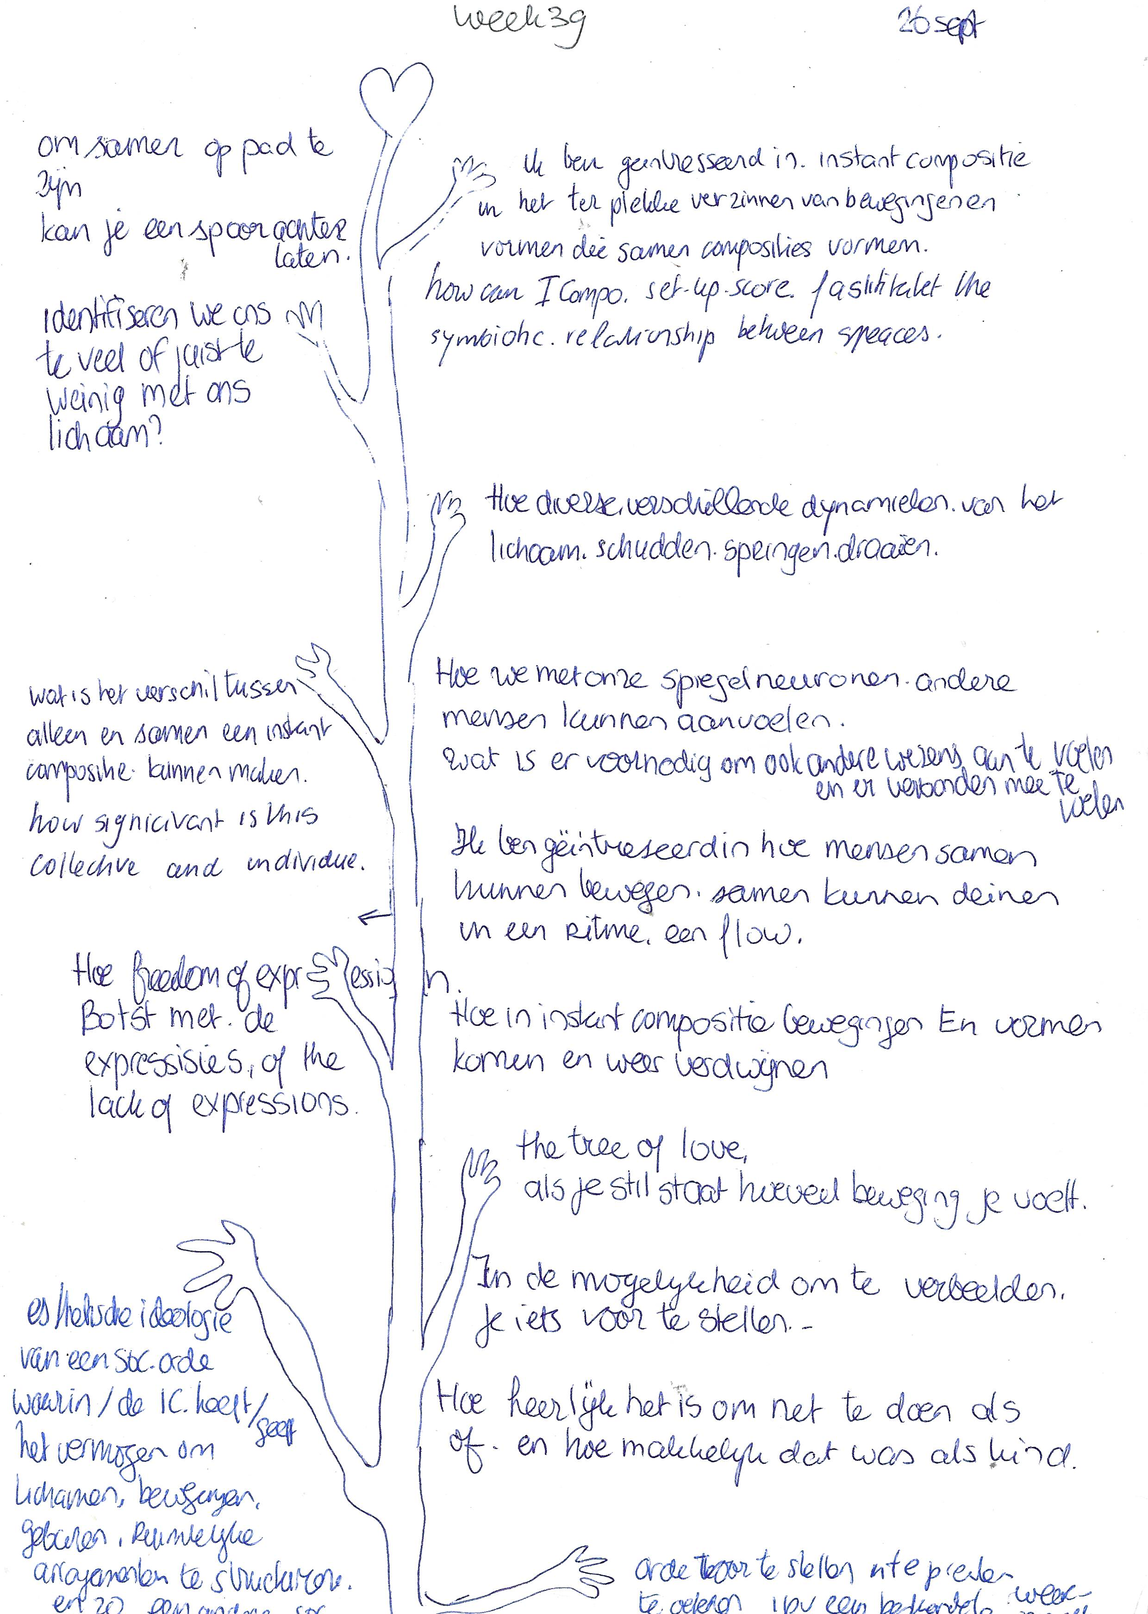 week 39
26 sept
om samen op pad te
zijn
kan je een spoor achter
laten.
Identifiseren we ons
te veel of juist te
weinig met ons
lichaam?
Ik ben geintresseerd in. instant compositie
in het ter plekke verzinnen van bewegingen en
vormen die samen composities vormen.
how can I compo. set-up-score. the
symbiotic. relationship between speaces.
Hoe diverse, verschillende dynamieken. van het
lichaam. schudden. springen. draaien.
wat is het verschil tussen
alleen en samen een instant
compositie. kunnen maken.
how signicivant is this
collective and individue.
Hoe we met onze spiegelneuronen. andere
mensen kunnen aanvoelen.
wat is er voor nodig om ook andere wezens aan te voelen
en er verbonden mee te
voelen
Ik ben geïntreseerd in hoe mensen samen
kunnen bewegen. samen kunnen deinen
in een ritme. een flow.
Hoe freedom of expression.
Botst met. de
expressisies, of the
lack of expressions.
Hoe in instant compositie bewegingen En vormen
komen en weer verdwijnen
the tree of love,
als je stil staat hoeveel beweging je voelt.
In de mogelijkheid om te verbeelden.
Je iets voor te stellen. -
esthetische ideologie
van een soc. orde
waarin / de IC. heeft /
geeft
het vermogen om
lichamen, bewegingen,
gebaren, Ruimtelijke
arrangementen te structuren.
en zo een andere soc
Hoe heerlijk het is om net te doen als
of. en hoe makkelijk dat was als kind.
orde voor te stellen
te een